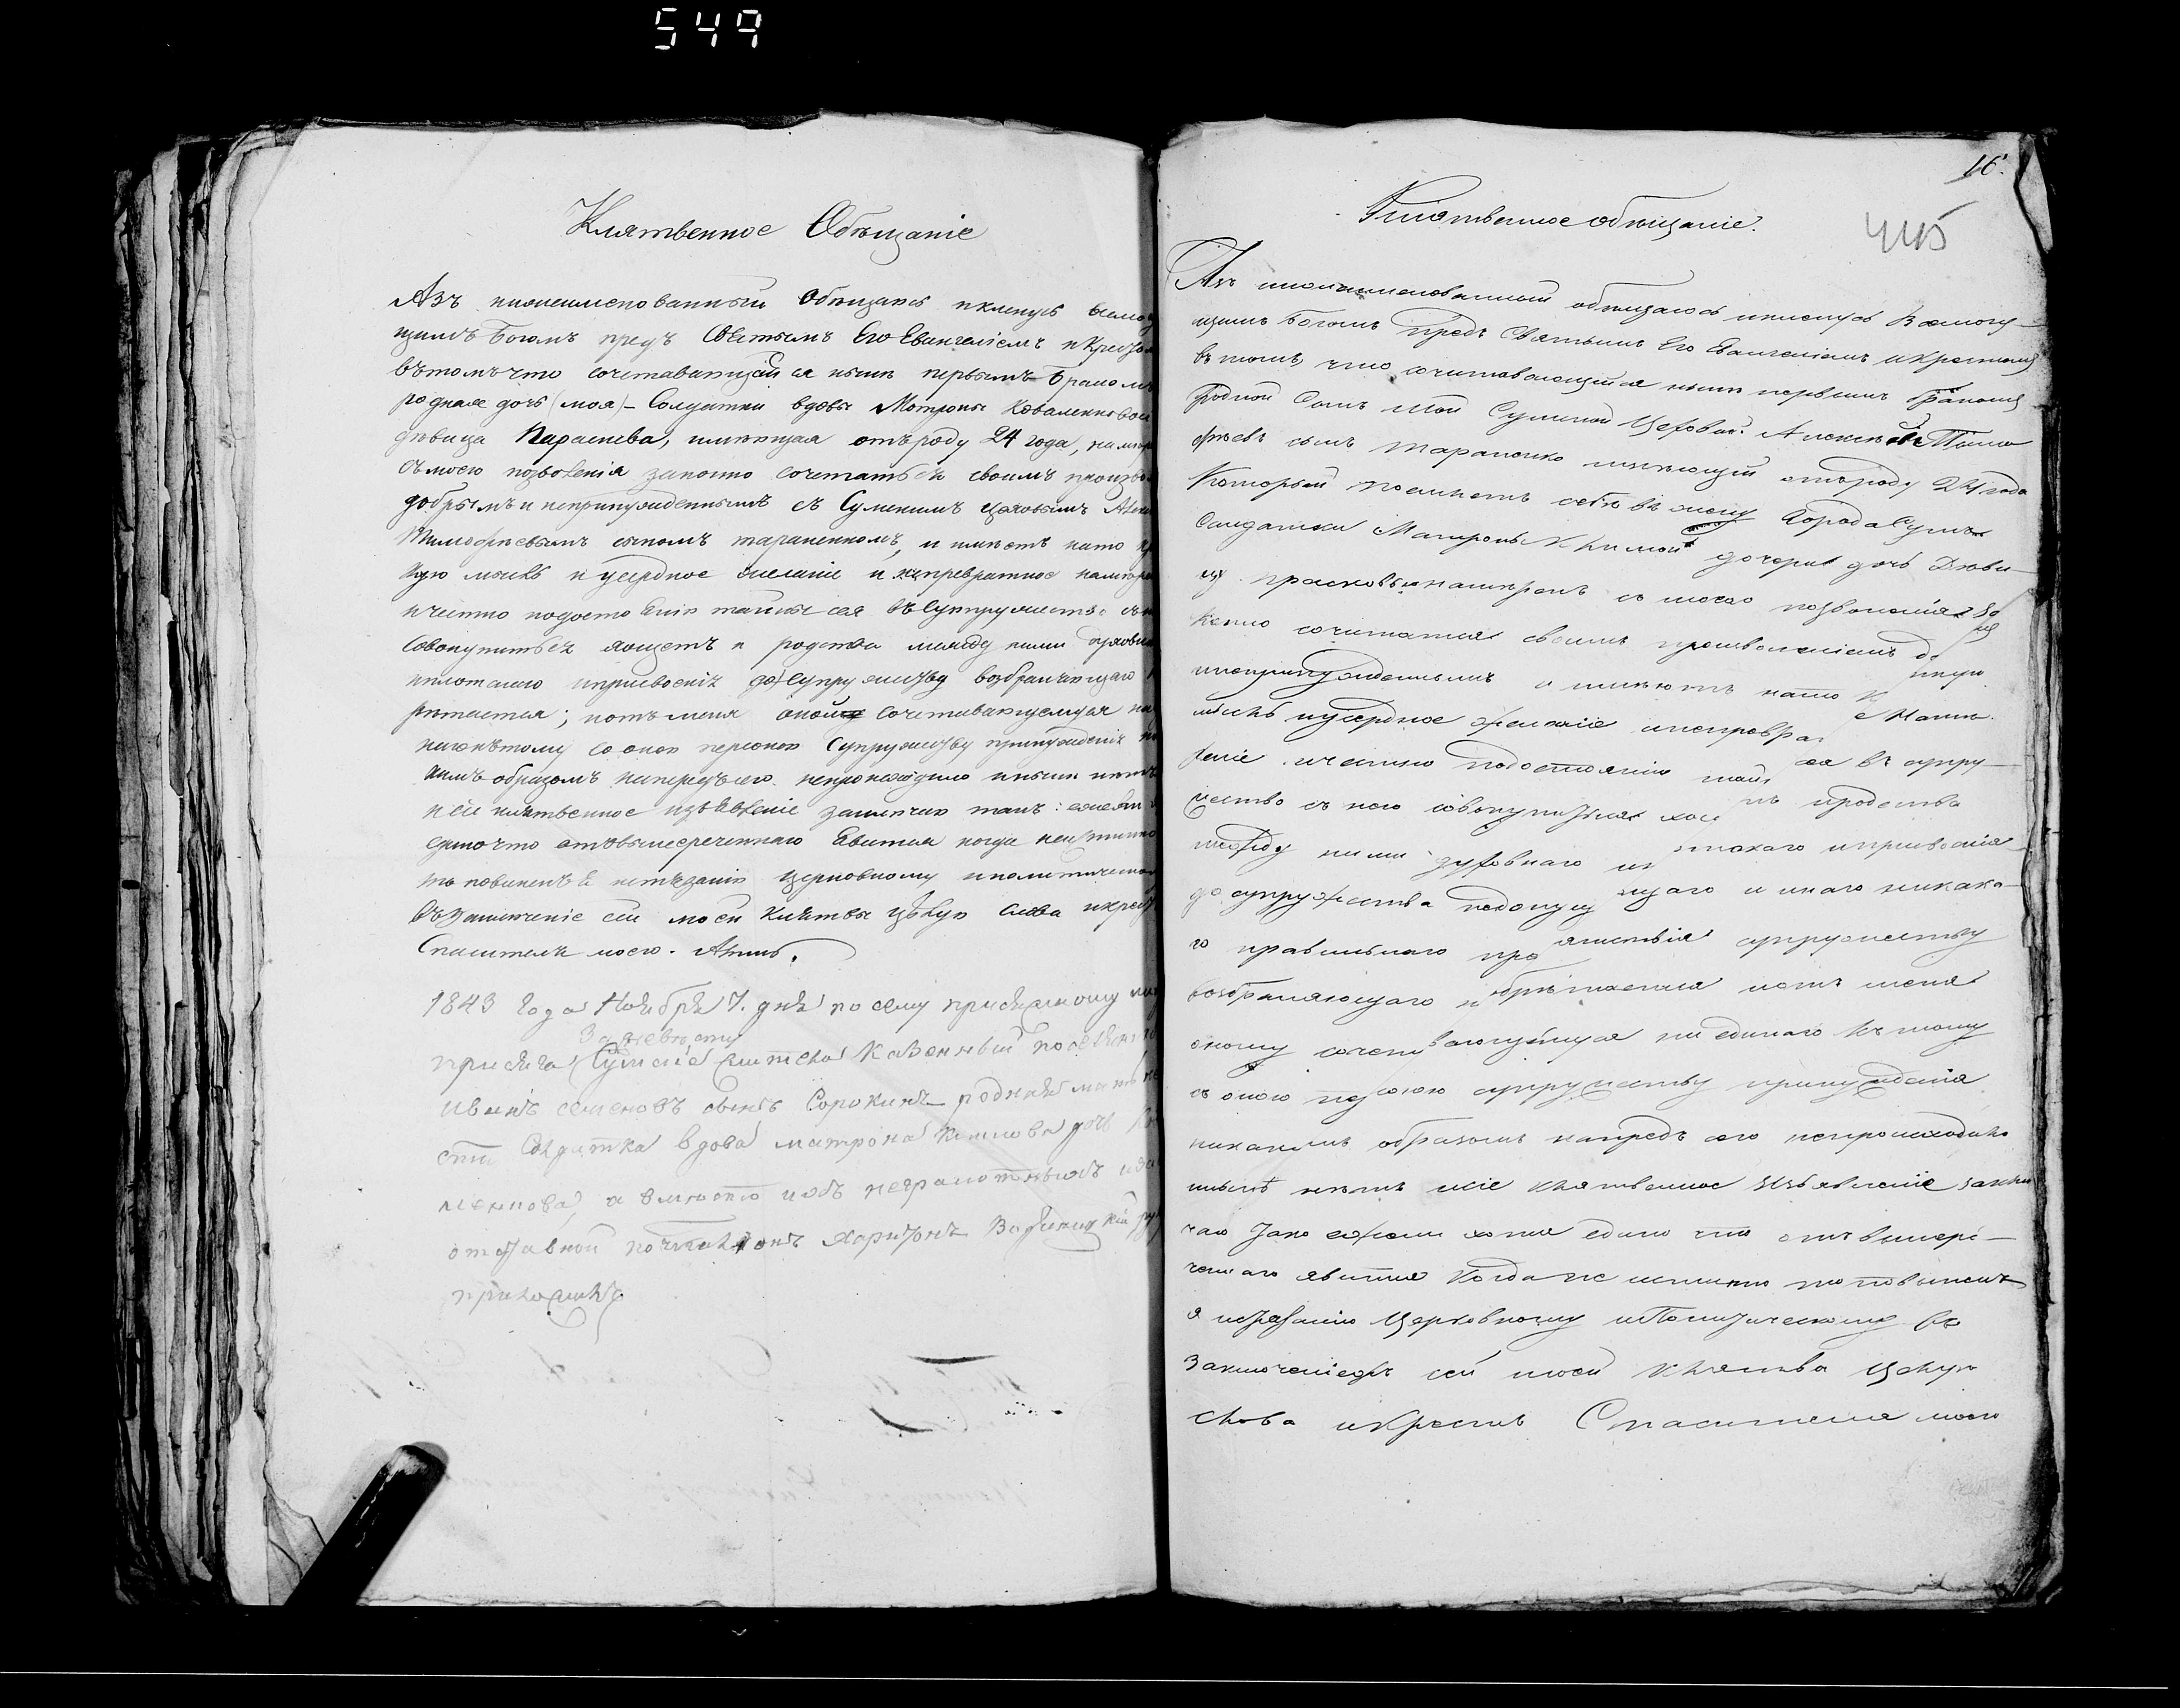 549
Клятвенное Обѣщаніе
Азъ нижеименованный Обѣщаюсь и кленусь всемогу
щимъ Богомъ предъ Святымъ Его Евангеліемъ и Крестомъ
вътомъ что сочетавающаяся нынѣ первымъ Бракомъ
родная дочь (моя) Солдатки вдовы Мотроны Коваленковой
дѣвица Параскева, имѣющая отъ роду 24 года,
съ моего позволенія законно сочетаться своимъ произво
добрымъ и непринужденнымъ съ Сумскимъ цеховымъ
Тимофѣевымъ сыномъ тараненкомъ, и имѣетъ на то
кую мысль и усердное желаніе и непревратное намѣре
и честно по достоянію тайны сея въ Супружество съ
совокупиться хощетъ и родства между ними духовн
и плотскаго и присвоенія до Супружеству возбраняющаго
рѣтается; и отъ меня оной сочетавающейся
къ тому со оною персоною Супружеству принужденія
кимъ образомъ напередъ сего непроисходило и нынѣ нѣтъ
и сіе клятвенное изъявленіе заключаю такъ: ежели
едино что отъ вышереченнаго явится когда неистинно
то повиненъ я истязанію церковному и политическому
Въ заключеніе сей моей клятвы цѣлую слова и крестъ
Спасителя моего. Аминь.
1843 года Ноября 7. дня по сему присяжному
За невѣсту
присягали Сумскіе жители Казенный поселян
Иванъ семеновъ сынъ Сорокинъ родная мать
Солдатка вдова матрона дочь
а вмѣсто ихъ неграмотныхъ
отставной почталіонъ Харитонъ
приложилъ
16.
445
Клятвенное обѣщаніе.
Азъ нижеименованный обѣщаюсь и кленусь Всемогу
щимъ Богомъ предъ Святымъ Его Евангеліемъ и Крестомъ
въ томъ, что сочитавающийся нынѣ первымъ бракомъ
родной Сынъ мой Сумской Цеховой Алексѣй Тимо
фѣевъ сынъ Тараненко имѣющій отъ роду 24 года
Который поемлетъ себѣ въ жену Города Сумъ
Солдатки Матроны дочери дочь Дѣви
цу прасковью намѣренъ съ моего позволенія за
конно сочитатся своимъ произволеніемъ до
и непринужденнымъ и имѣютъ на то к
мысль и усердное желаніе и непревра е Намѣ
реніе и честно по достоянію тайн сея въ супру
жество съ нею совокупитися хощ тъ и родства
между ними духовнаго и п тскаго и присвоенія
до супружества недопущ ющаго и инаго никако
го правильнаго пре пятствія супружеству
возбраняющаго не обрѣтается и отъ меня
оному сочета вающемуся ни единаго къ тому
съ оною персоною супружеству принужденія
никакимъ образомъ напредъ сего непроисходило
и нынѣ нѣтъ и сіе клятвенное изъявленіе заклю
чаю Тако ежели хотя едино что отъ вышере
ченнаго явится когда не истинно то повиненъ
я истязанію Церковному и Политическому въ
заключеніе сей моей клятвы Целую
слова и Крестъ Спасителя моего